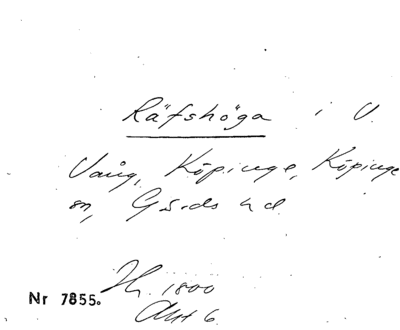 Räfshöga i V.
Vång, Köpinge, Köpinge
sn, Gärds hd.
1800
Akt 6
Nr 7855.